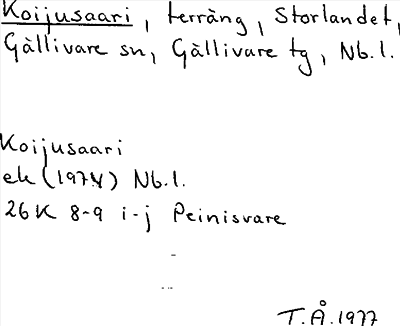 Koijusaari, terräng, Storlandet,
Gällivare sn, Gällivare tg, Nb.l.
Koijusaari
ek (1974) Nb.l.
26K 8-9 i-j Peinisvare
T.Å.1977